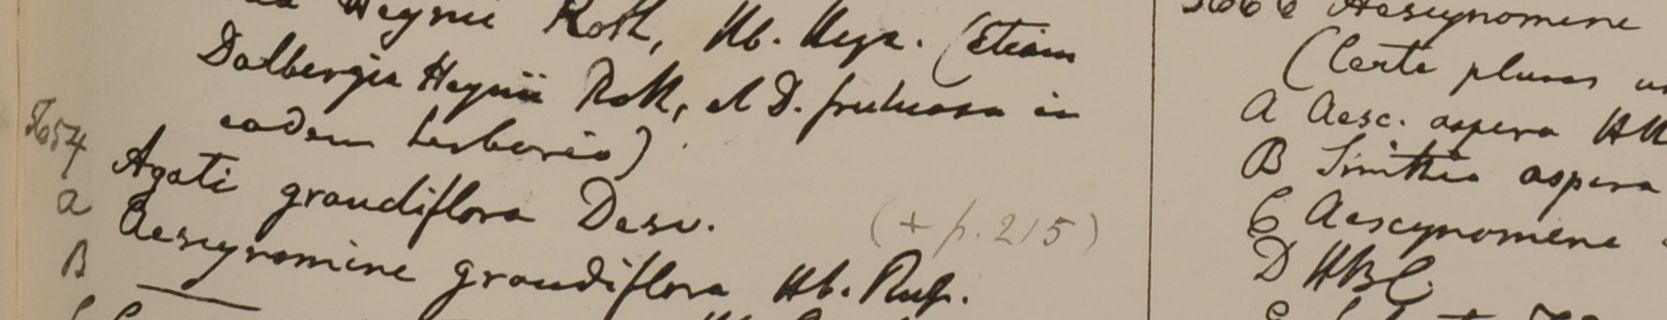 Heynii Roth, Hb. Heyn. (Etiam
Dalbergia Heynii Roth, et D. fruticosa in
eodem herbario)
5657 Agati grandiflora Desv.
(+ p. 215)
A Aescynomine grandiflora Hb. Russ.
B
5666 Aescynomene
(Certe plures
A Aesc. aspera
B Smithia aspera
C Aescynomene
D HBC.